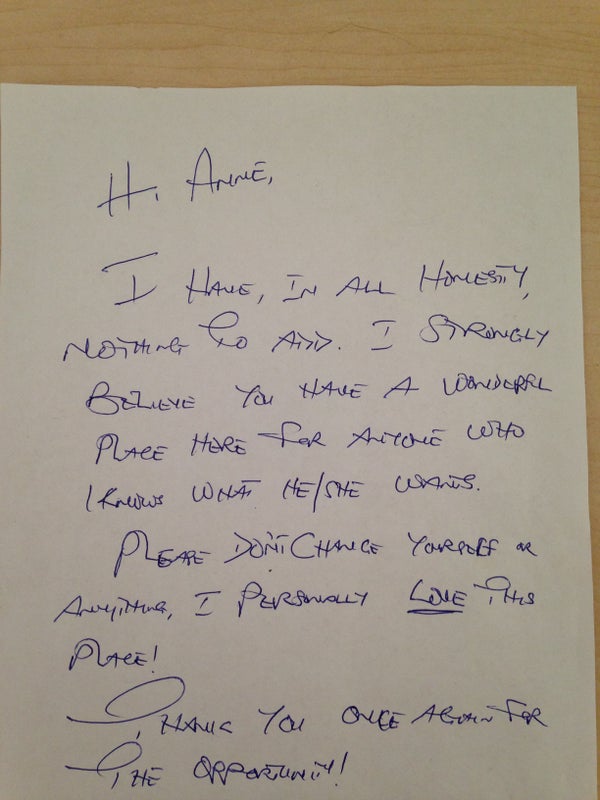 Hi Anne,
I have, in all honesty,
nothing to add. I strongly
believe you have a wonderfl
place here for anyone who
knows what he/she wants.
Please don't change yourself or
anything, I personally love this
place!
Thank you once again for
the opportunity!